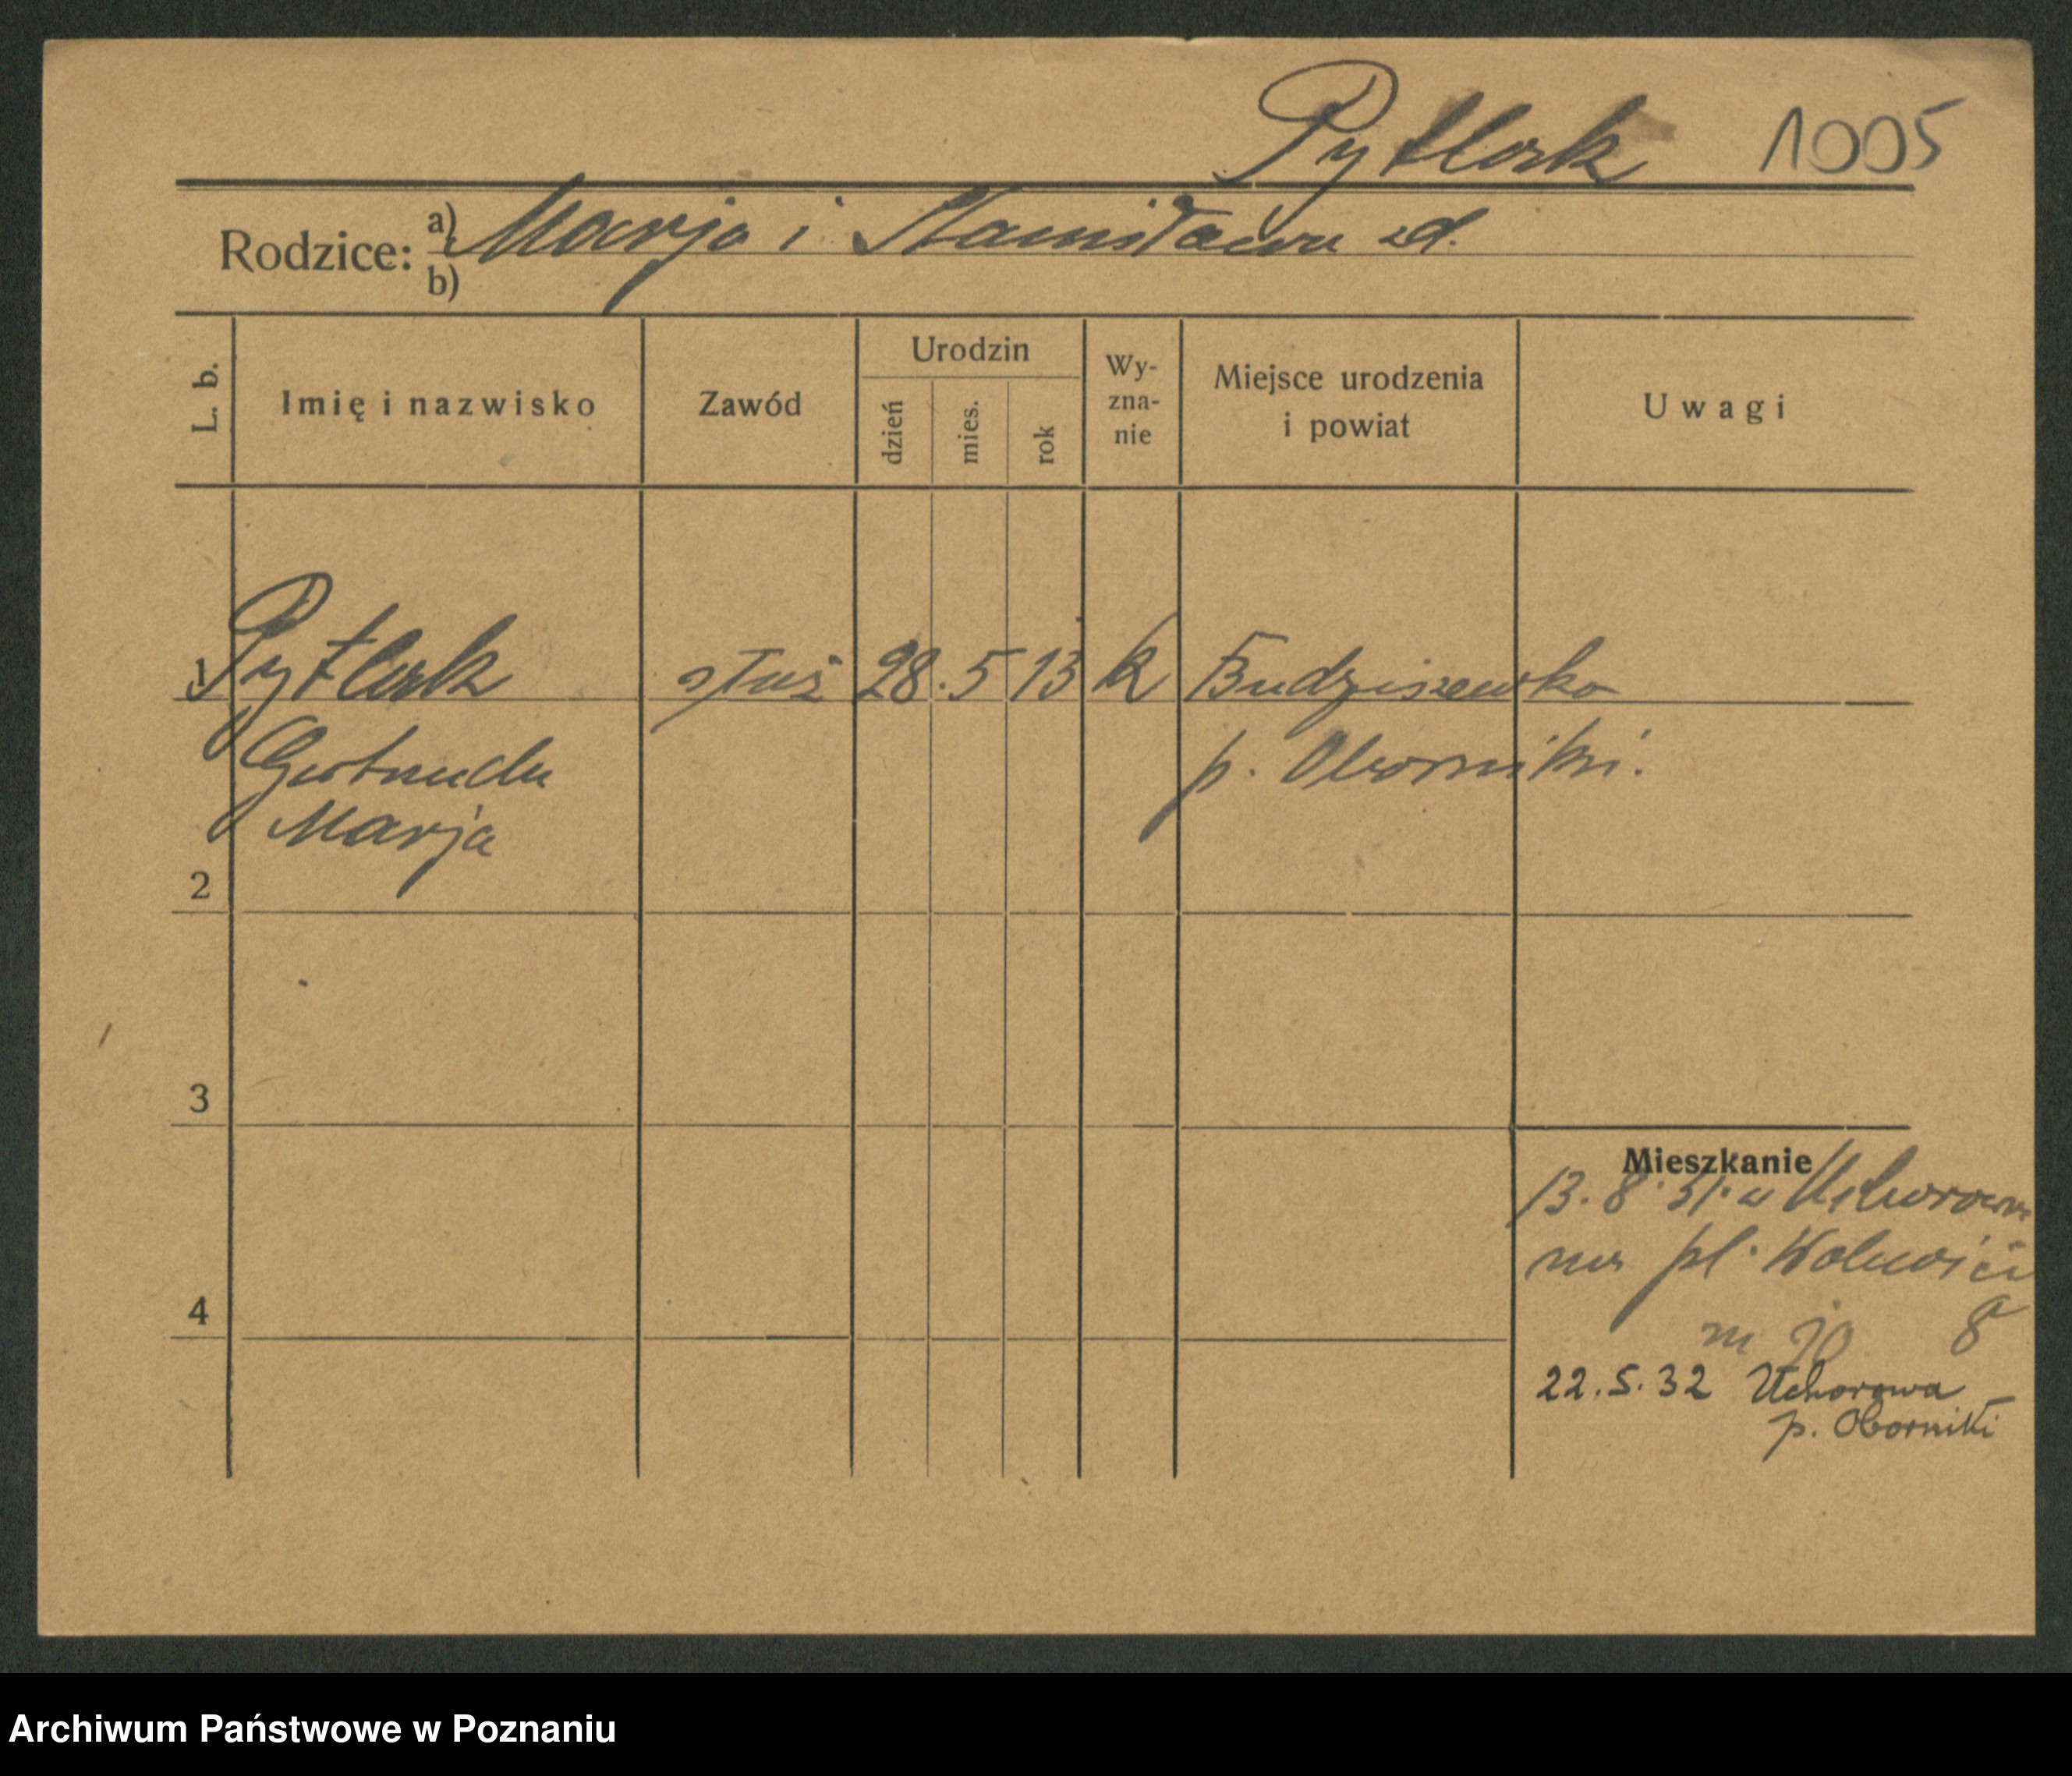 Pytlak 1005
Rodzice: a) Marja i Stanisława zd.
b)
L. b.
Imię i nazwisko
Zawód
Urodzin
dzień
mies.
rok
Wy-
zna-
nie
Miejsce urodzenia
i powiat
Uwagi
1 Pytlak służ 28. 5 13 k Budziszewko
Gertruda p. Oborniki.
Marja
2
3
Mieszkanie
13. 8. 31. z Uchorowa
na pl. Wolności
4
m 8
22.5.32 Uchorowa
p. Oborniki
Archiwum Państwowe w Poznaniu